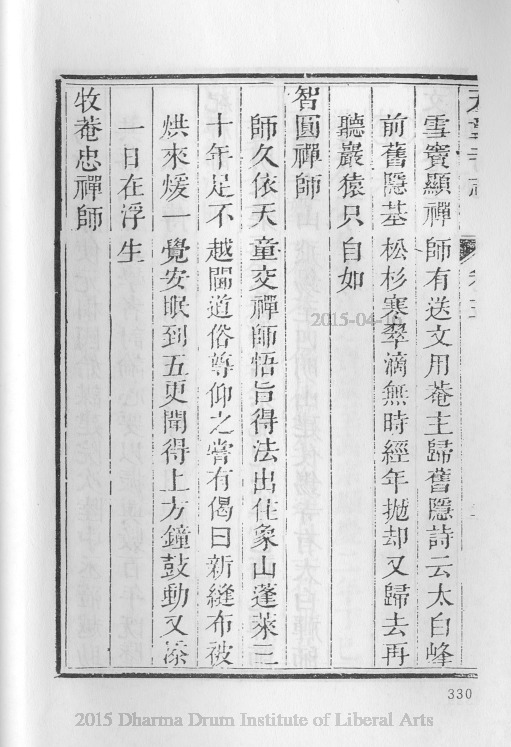 雪竇顯禪師有送文用菴主歸舊隱詩云太白峰
前舊隱基松杉寒翠滴無時經年拋却又歸去再
聽巖猿只自如
智圓禪師
師久依天童交禪師悟旨得法出住象山蓬萊三
十年足不越閫道俗等仰之甞有偈曰新縫布被
烘來煖一覺安眠到五更聞得上方鐘鼓動又添
一日在浮生
牧菴忠禪師
2015-04-16
330
2015 Dharma Drum Institute of Liberal Arts